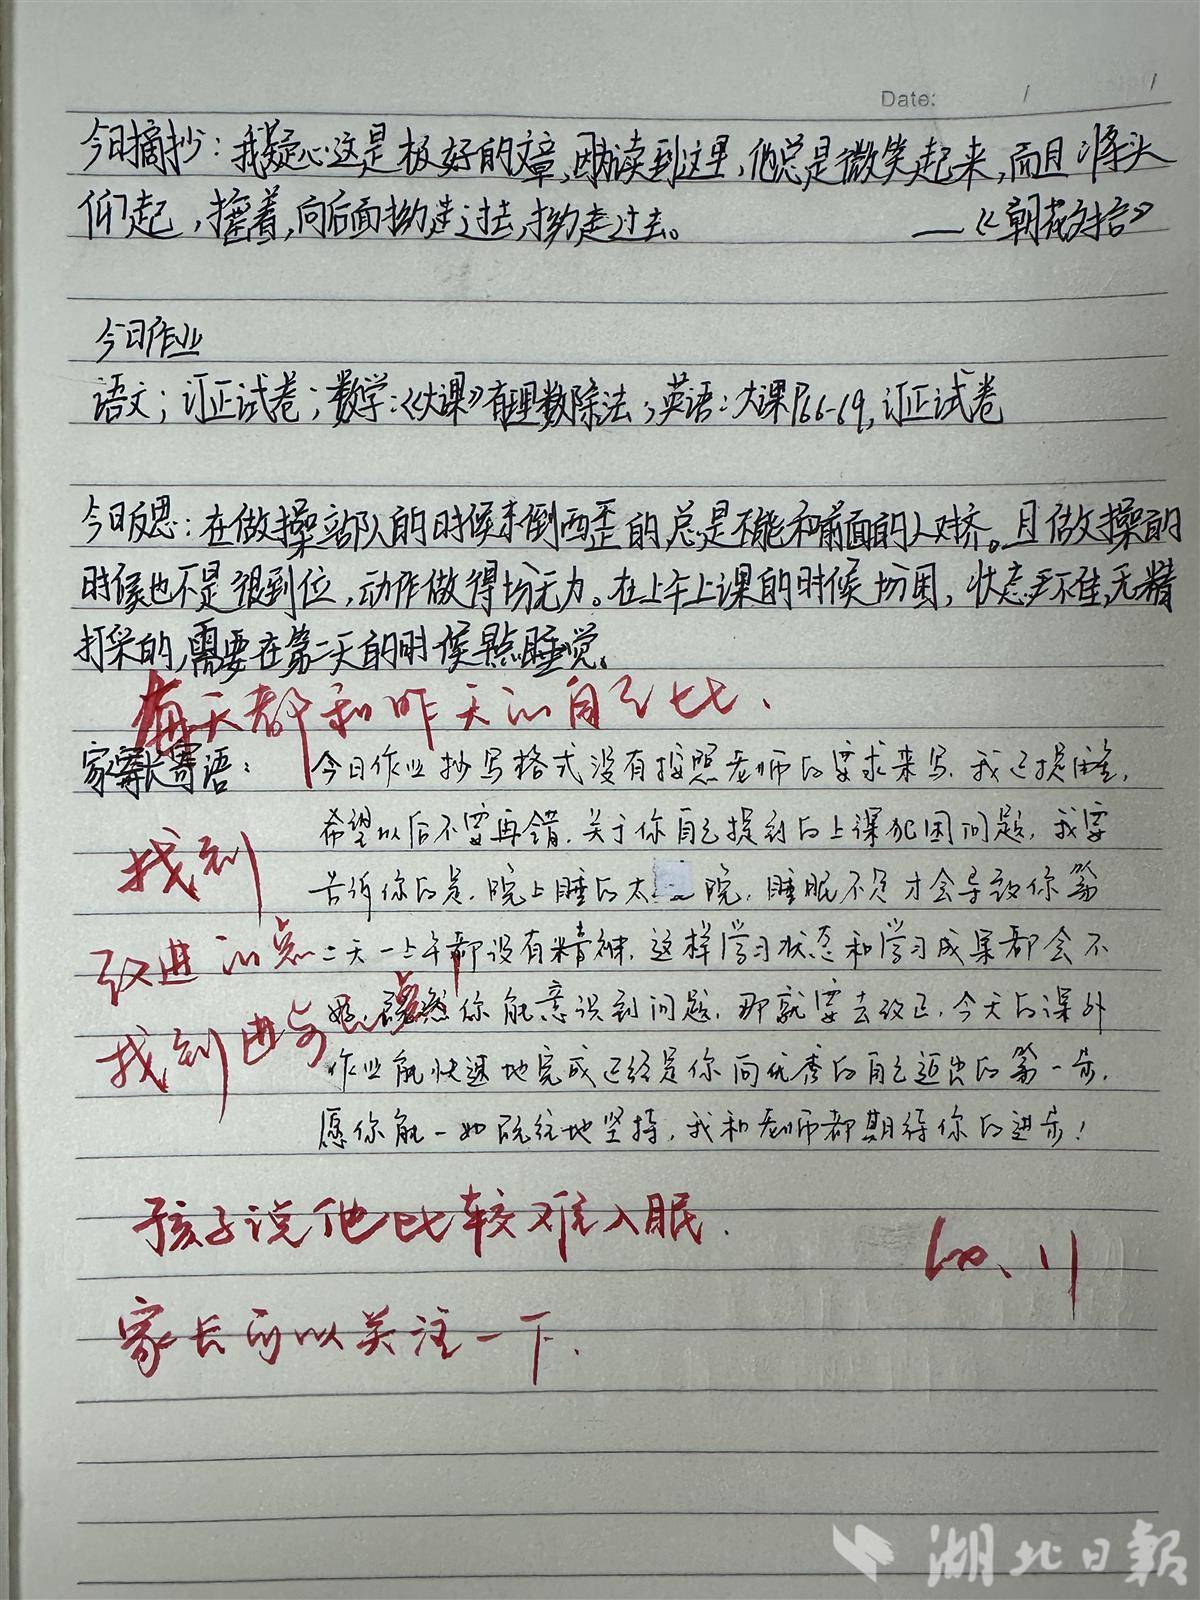 Date: / /
今日摘抄：我疑心这是极好的文章，因为读到这里，他总是微笑起来，而且将头
仰起，摇着，向后面拗过去，拗过去。 —《朝花夕拾》
今日作业
语文；订正试卷；数学：《大课》有理数除法；英语：大课P66-69，订正试卷
今日反思：在做操站队的时候东倒西歪的总是不能和前面的人对齐。且做操的
时候也不是很到位，动作做得均无力。在上午上课的时候均困，状态不佳，无精
打采的，需要在第二天的时候早点睡觉。
每天都和昨天的自己比.
家长寄语：
今日作业抄写格式没有按照老师的要求来写.我已提醒,
希望以后不要再错.关于你自己提到的上课犯困问题,我要
告诉你的是,晚上睡的太晚,睡眠不足才会导致你第
二天一上午都没有精神,这样学习状态和学习成果都会不
好,既然你能意识到问题,那就要去改正,今天的课外
作业能快速地完成已经是你向优秀的自己迈出的第一步.
愿你能一如既往地坚持,我和老师都期待你的进步!
找到
改进的点
找到进步点
孩子说他比较难入眠.
家长可以关注一下.
湖北日報